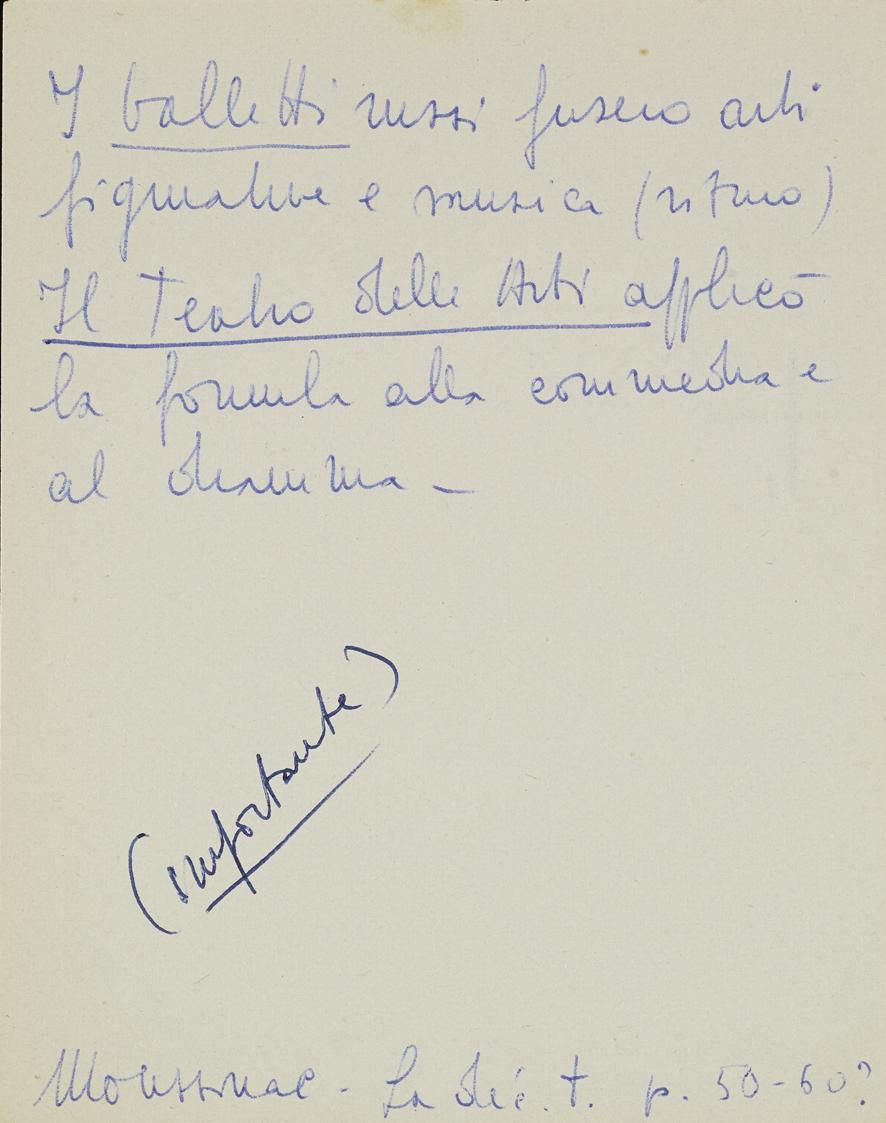 I balletti russi fusero arti
figurative e musica (ritmo)
Il Teatro delle Arti applicò
la formula alla commedia e
al dramma –
(importante)
Moussinac - La déc. t. p. 50-60?